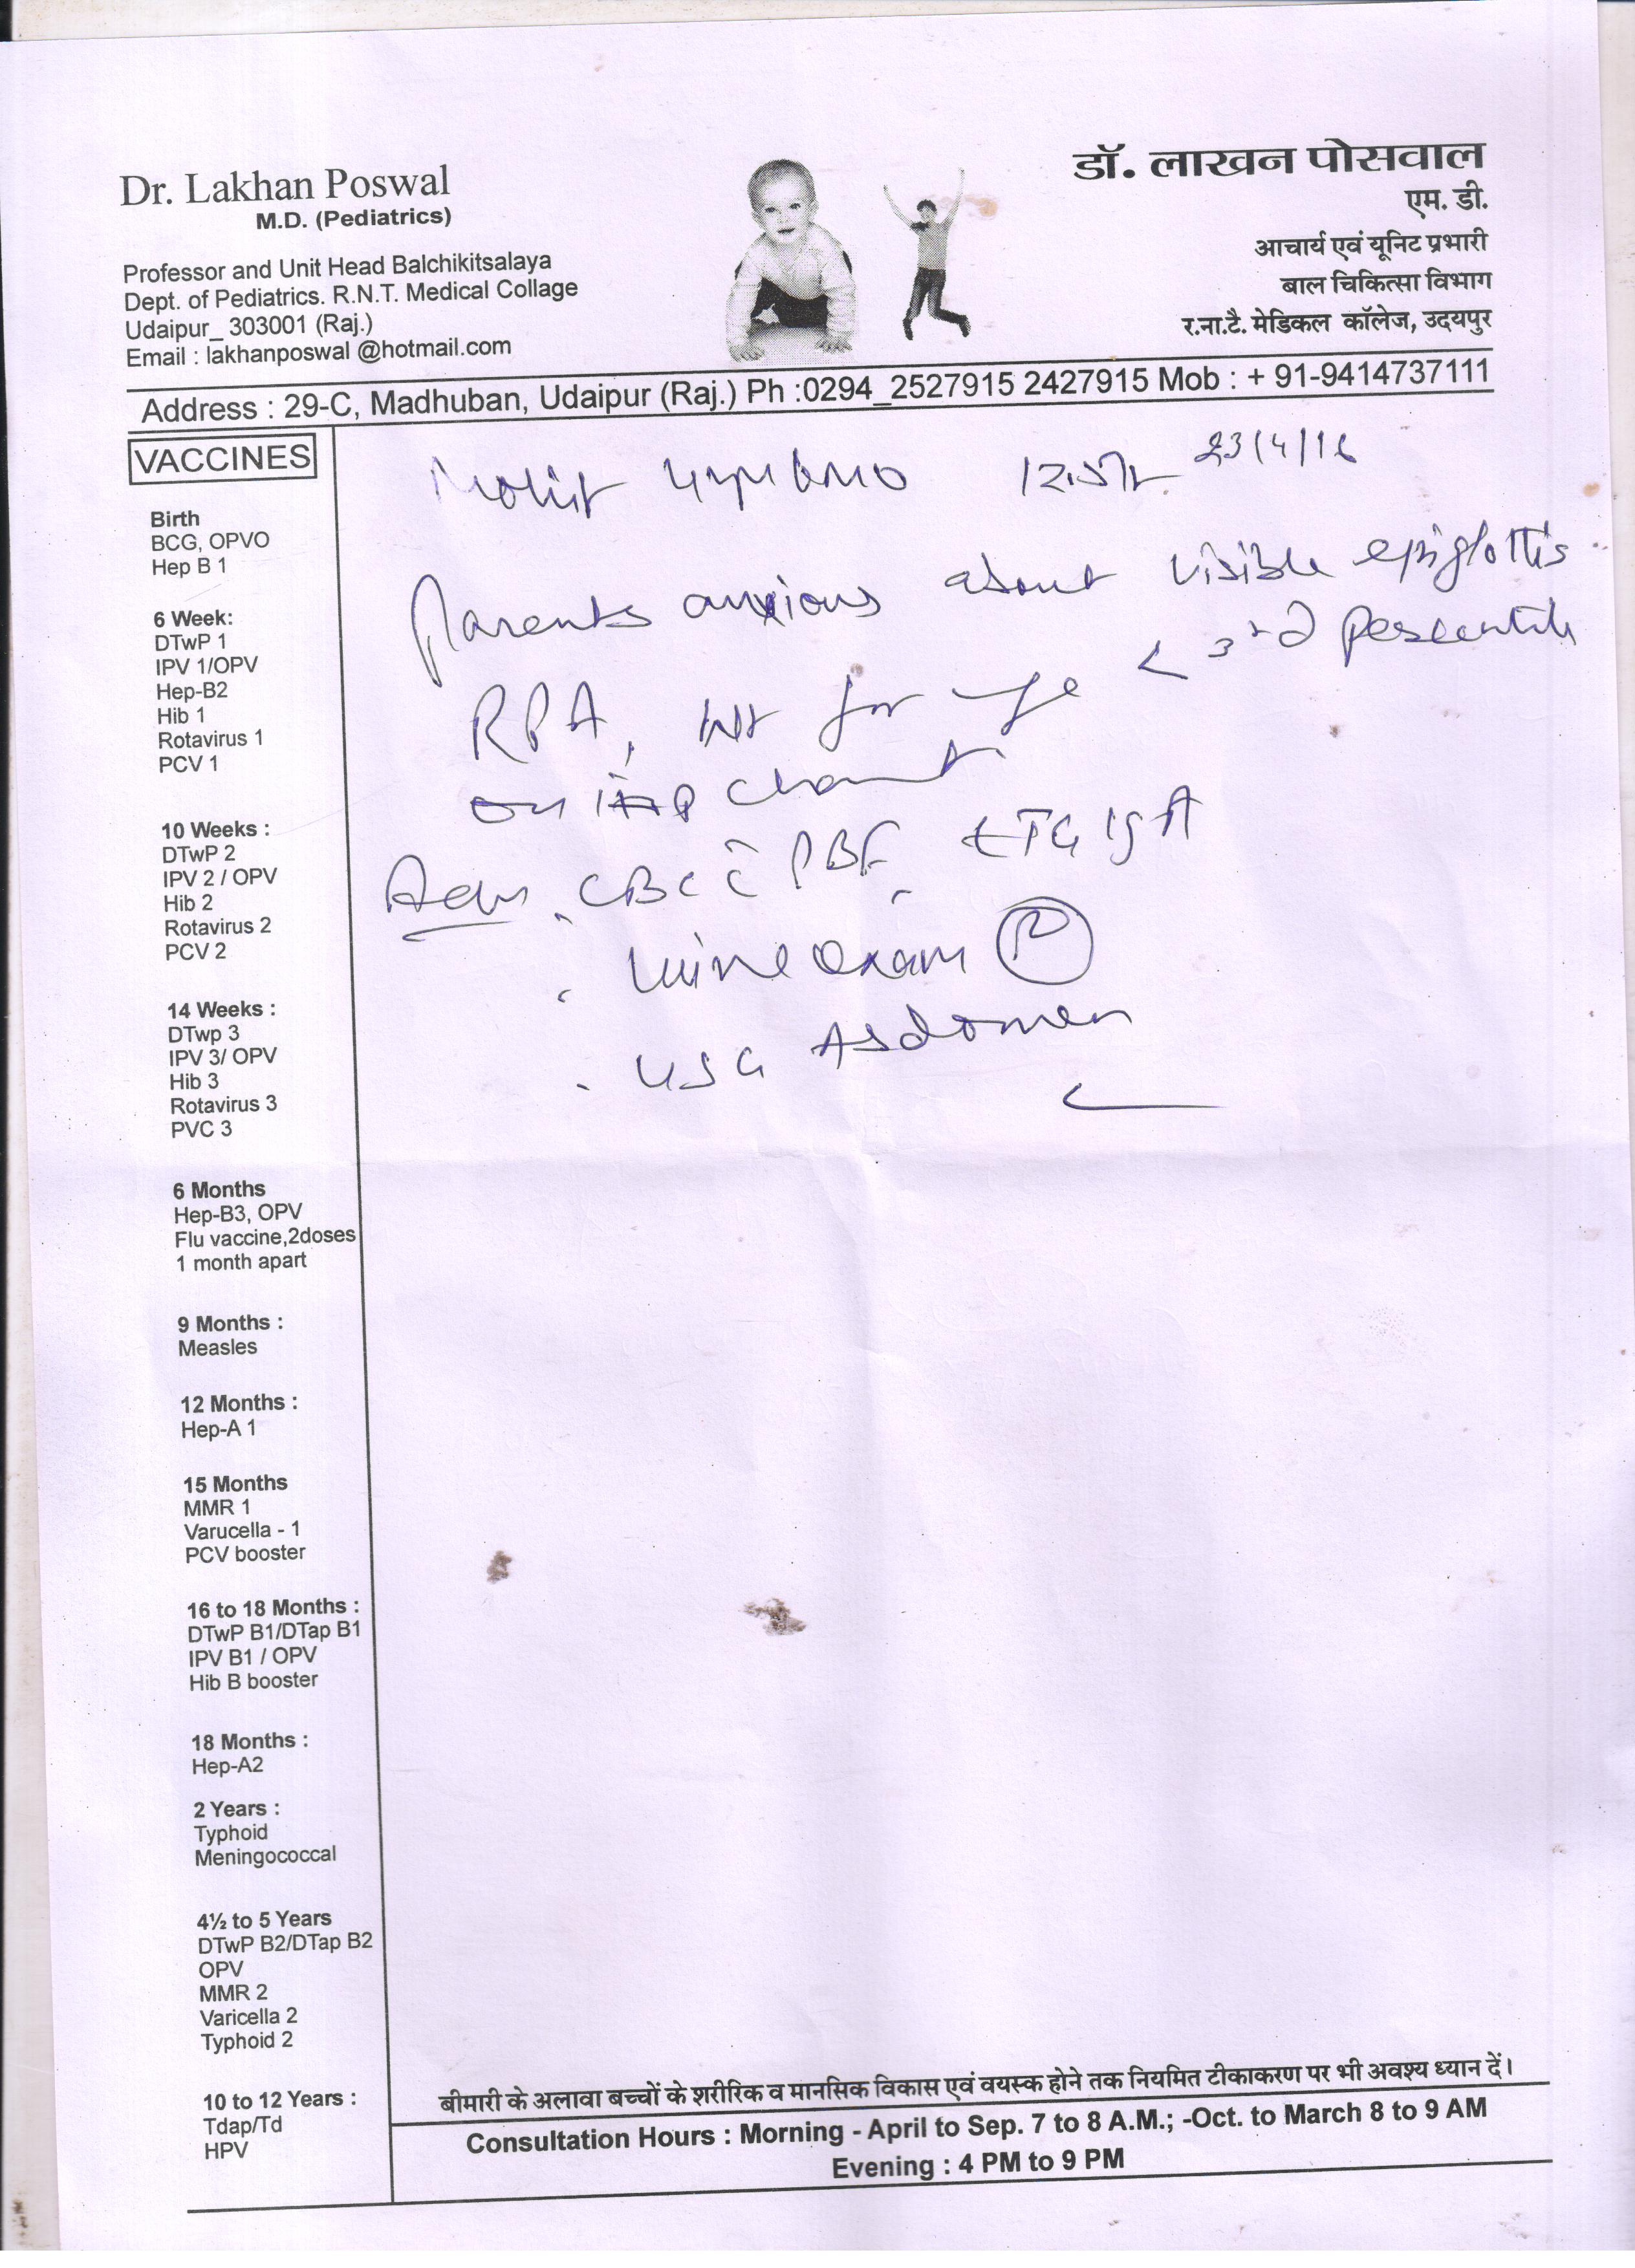 Dr. Lakhan Poswal
M.D. (Pediatrics)
Professor and Unit Head Balchikitsalaya
Dept. of Pediatrics. R.N.T. Medical Collage
Udaipur_ 303001 (Raj.)
Email : lakhanposwal @hotmail.com
डॉ. लाखन पोसवाल
एम. डी.
आचार्य एवं यूनिट प्रभारी
बाल चिकित्सा विभाग
र.ना.टै. मेडिकल कॉलेज, उदयपुर
Address : 29-C, Madhuban, Udaipur (Raj.) Ph :0294_2527915 2427915 Mob : + 91-9414737111
VACCINES
Birth
BCG, OPVO
Hep B 1
6 Week:
DTwP 1
IPV 1/OPV
Hep-B2
Hib 1
Rotavirus 1
PCV 1
10 Weeks :
DTwP 2
IPV 2 / OPV
Hib 2
Rotavirus 2
PCV 2
14 Weeks :
DTwp 3
IPV 3/ OPV
Hib 3
Rotavirus 3
PVC 3
6 Months
Hep-B3, OPV
Flu vaccine,2doses
1 month apart
9 Months :
Measles
12 Months :
Hep-A 1
15 Months
MMR 1
Varucella - 1
PCV booster
16 to 18 Months :
DTwP B1/DTap B1
IPV B1 / OPV
Hib B booster
18 Months :
Hep-A2
2 Years :
Typhoid
Meningococcal
4½ to 5 Years
DTwP B2/DTap B2
OPV
MMR 2
Varicella 2
Typhoid 2
10 to 12 Years :
Tdap/Td
HPV
Mohit 23/4/16
Parents anxious about visible epiglottis
RPA, wt for age < 3rd percentile
on chart
Adv. CBC c̄ PBF, tTG IgA
Urine exam (R)
USG Abdomen
बीमारी के अलावा बच्चों के शरीरिक व मानसिक विकास एवं वयस्क होने तक नियमित टीकाकरण पर भी अवश्य ध्यान दें।
Consultation Hours : Morning - April to Sep. 7 to 8 A.M.; -Oct. to March 8 to 9 AM
Evening : 4 PM to 9 PM